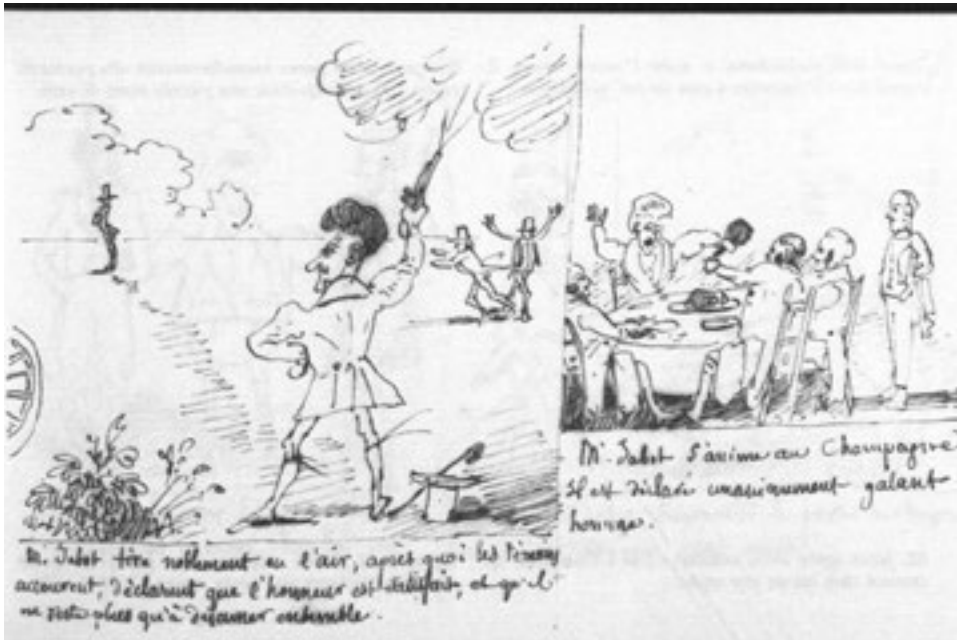 Mr. Jabot tire noblement en l'air, après quoi les témoins
accourent, déclarent que l'honneur est satisfait, et qu'il
ne reste plus qu'à déjeuner ensemble.
Mr. Jabot s'anime au Champagne
Il est déclaré unanimement galant
homme.